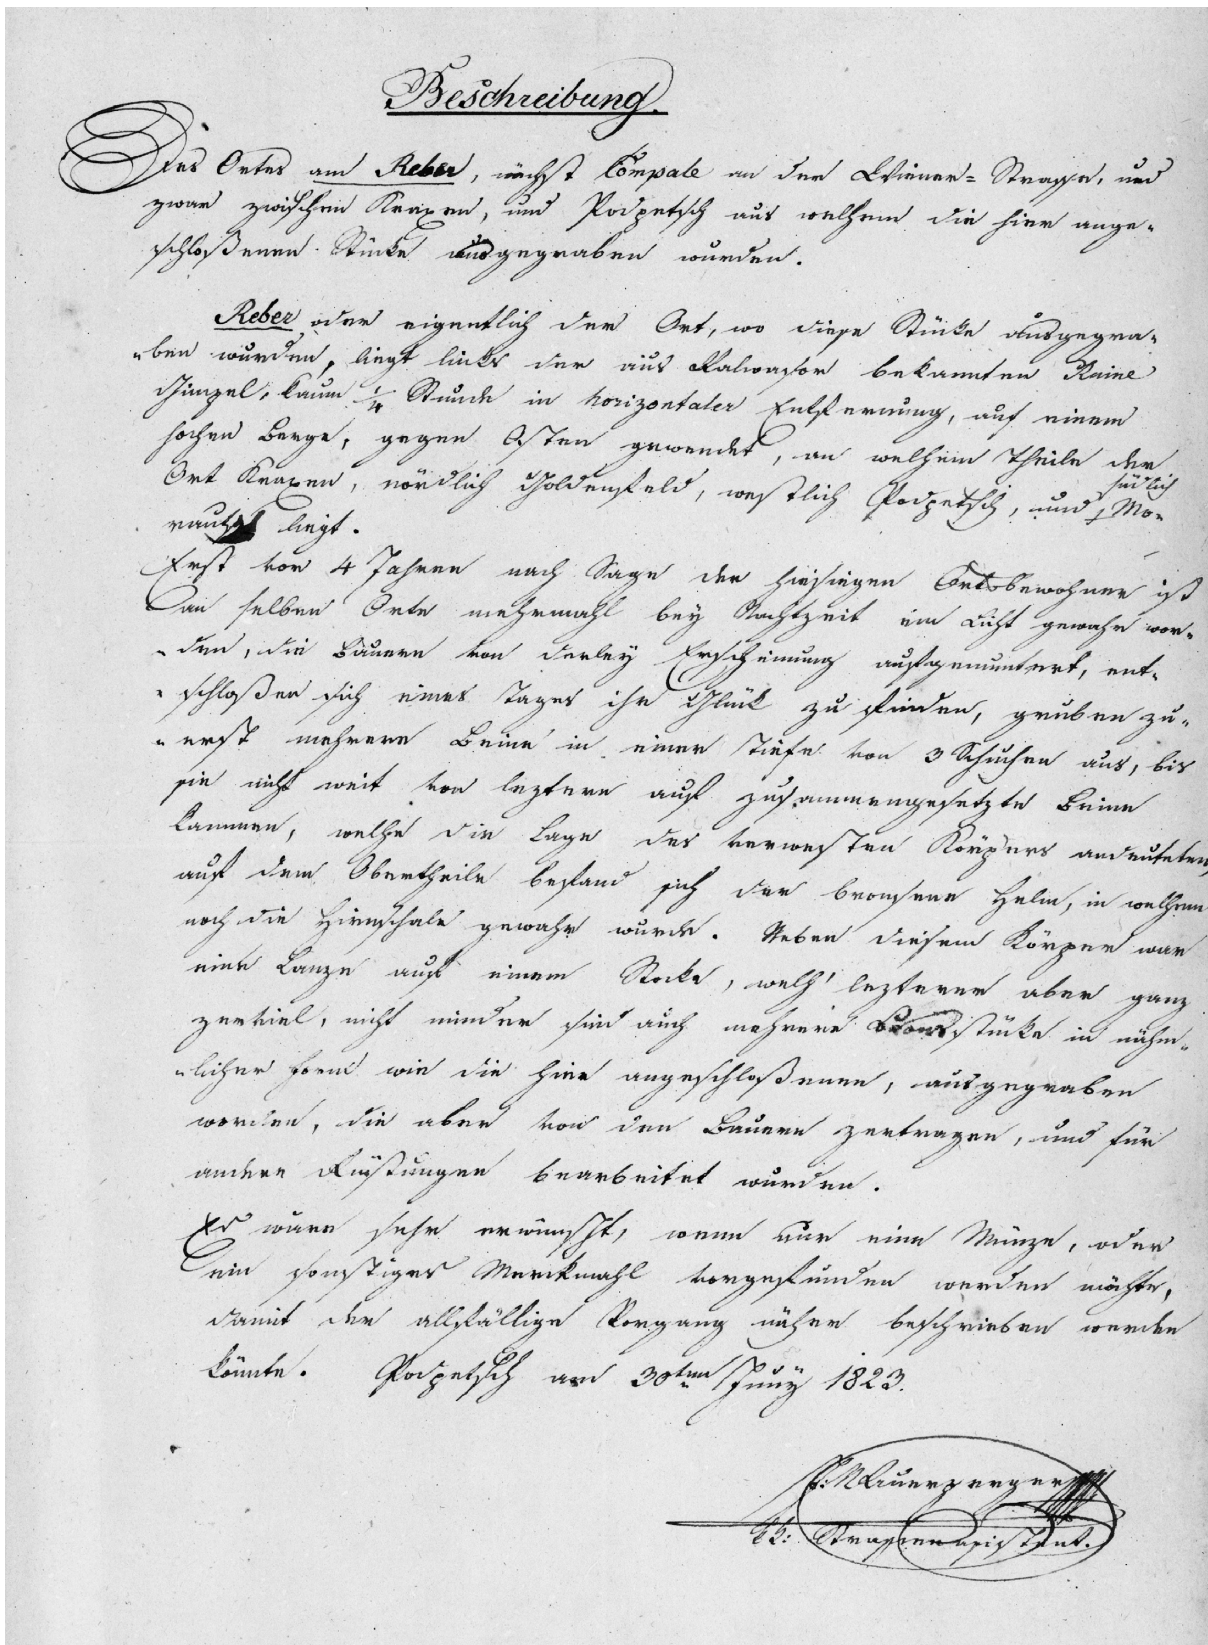 Beschreibung.
Des Ortes am Reber, nächst Compale an der Wiener= Strasse, und
zwar zwischen Kraxen, und Podpetsch aus welchem die hier ange-
schloßenen Stücke ausgegraben wurden.
Reber oder eigentlich der Ort, wo diese Stücke ausgegra-
-ben wurden, liegt links der aus Valvasor bekannten Ruine
Gimpel, kaum 1/4 Stunde in horizontaler Entfernung, auf einem
hochen Berge, gegen Osten gewendet, an welchem Theile der
Ort Kraxen, nördlich Goldenfeld, westlich Podpetsch, und südlich Mo-
rautsch liegt.
Erst vor 4 Jahren nach Sage der hiesigen Ortsbewohner ist
an selben Orte mehrmahl bey Nachtzeit ein Licht gewahr wor-
-den, die Bauern von derley Erscheinung aufgemuntert, ent-
-schloßen sich eines Tages ihr Glück zu finden, gruben zu-
-erst mehrere Beine in einer Tiefe von 3 Schuhen aus, bis
sie nicht weit von leztern auf zusammengesetzte Beine
kammen, welche die Lage des verwesten Körpers andeuteten,
auf dem Obertheile befand sich der bronsene Helm, in welchem
noch die Hirnschale gewahr wurde. Neben diesem Körper war
eine Lanze auf einem Stocke, welch' lezterer aber ganz
zerfiel, nicht minder sind auch mehrere Bronsstücke in nähm-
-licher Form wie die hier angeschloßenen, ausgegraben
worden, die aber von den Bauern zertragen, und für
andere Rüstungen bearbeitet wurden.
Es wäre sehr erwünscht, wenn nur eine Münze, oder
ein sonstiges Merckmahl vorgefunden werden möchte,
damit der allfällige Vorgang näher beschrieben werden
könnte. Podpetsch am 30ten Juny 1823.
kk: Strassenassistent.